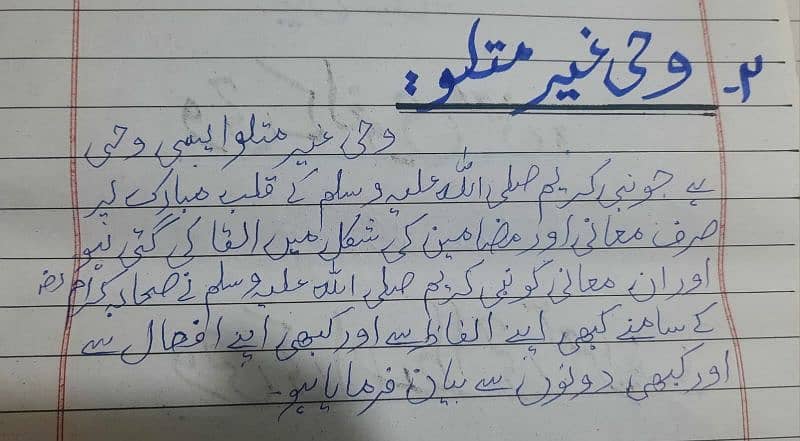 ۲۔ وحی غیر متلو:
وحی غیر متلو ایسی وحی
ہے جو نبی کریم صلی اللہ علیہ وسلم کے قلب مبارک پر
صرف معانی اور مضامین کی شکل میں القا کی گئی ہو
اور ان معانی کو نبی کریم صلی اللہ علیہ وسلم نے صحابہ کرامؓ
کے سامنے کبھی اپنے الفاظ سے اور کبھی اپنے افعال سے
اور کبھی دونوں سے بیان فرمایا ہو۔